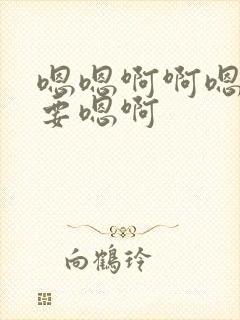 嗯嗯啊啊嗯
要嗯啊
向鹤玲